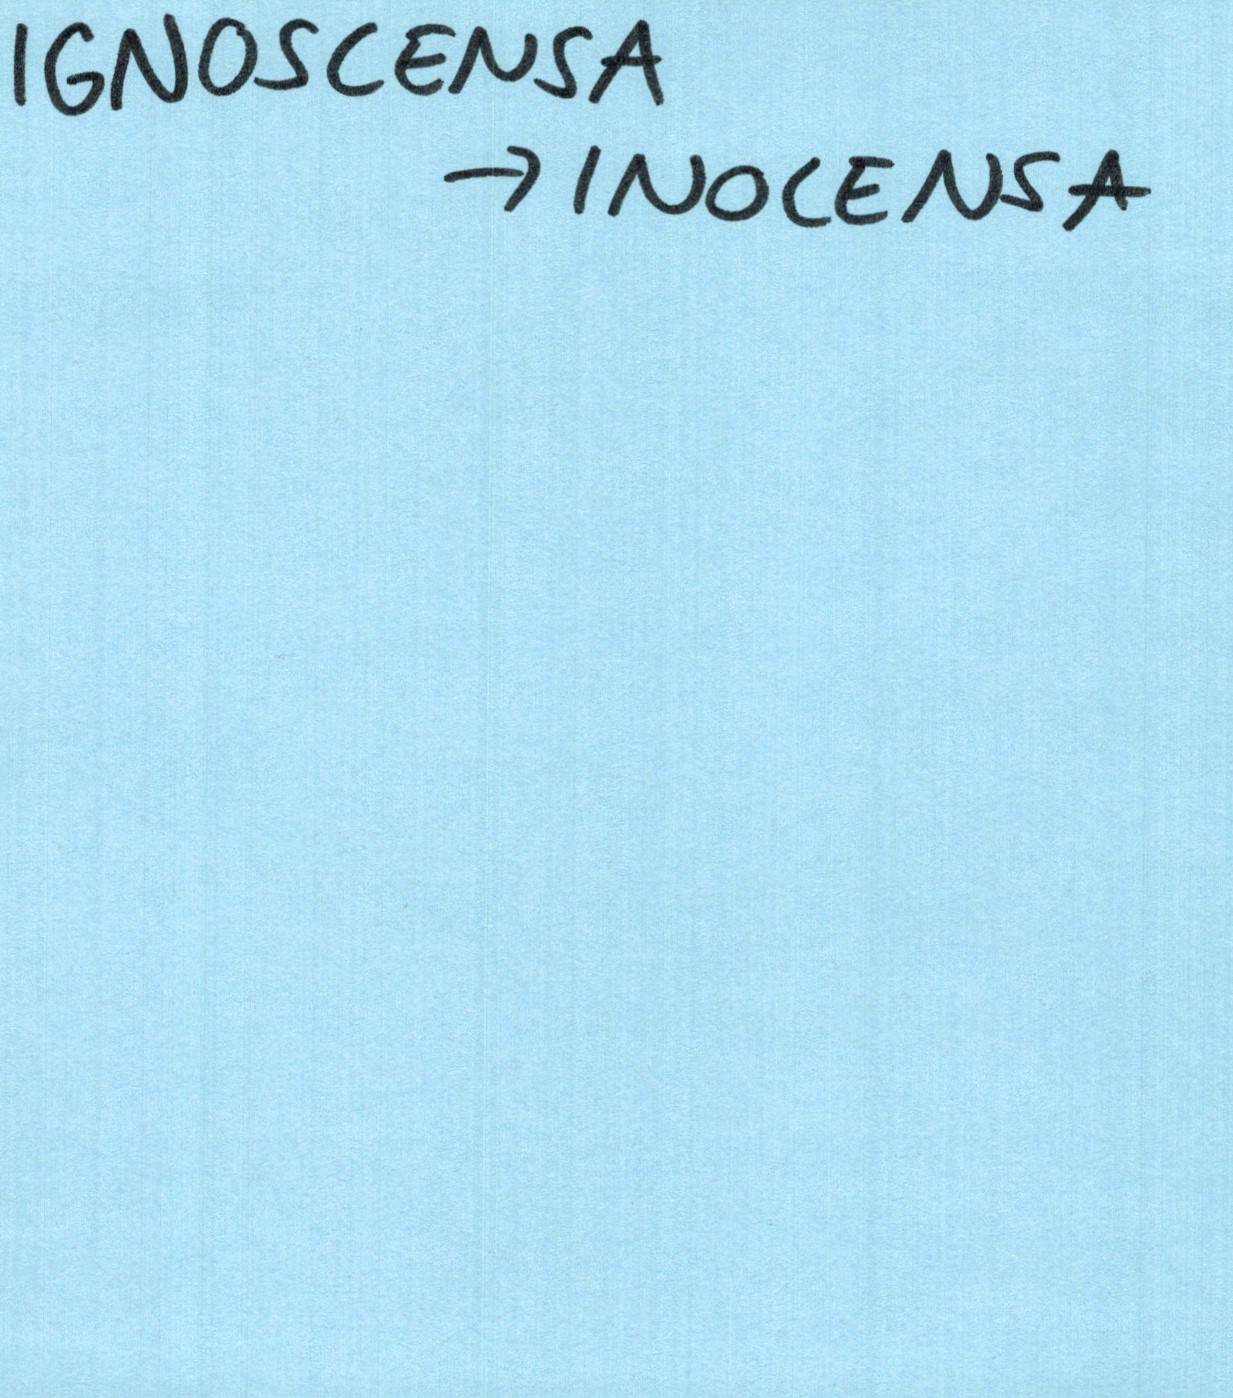 IGNOSCENSA
→ INOCENSA